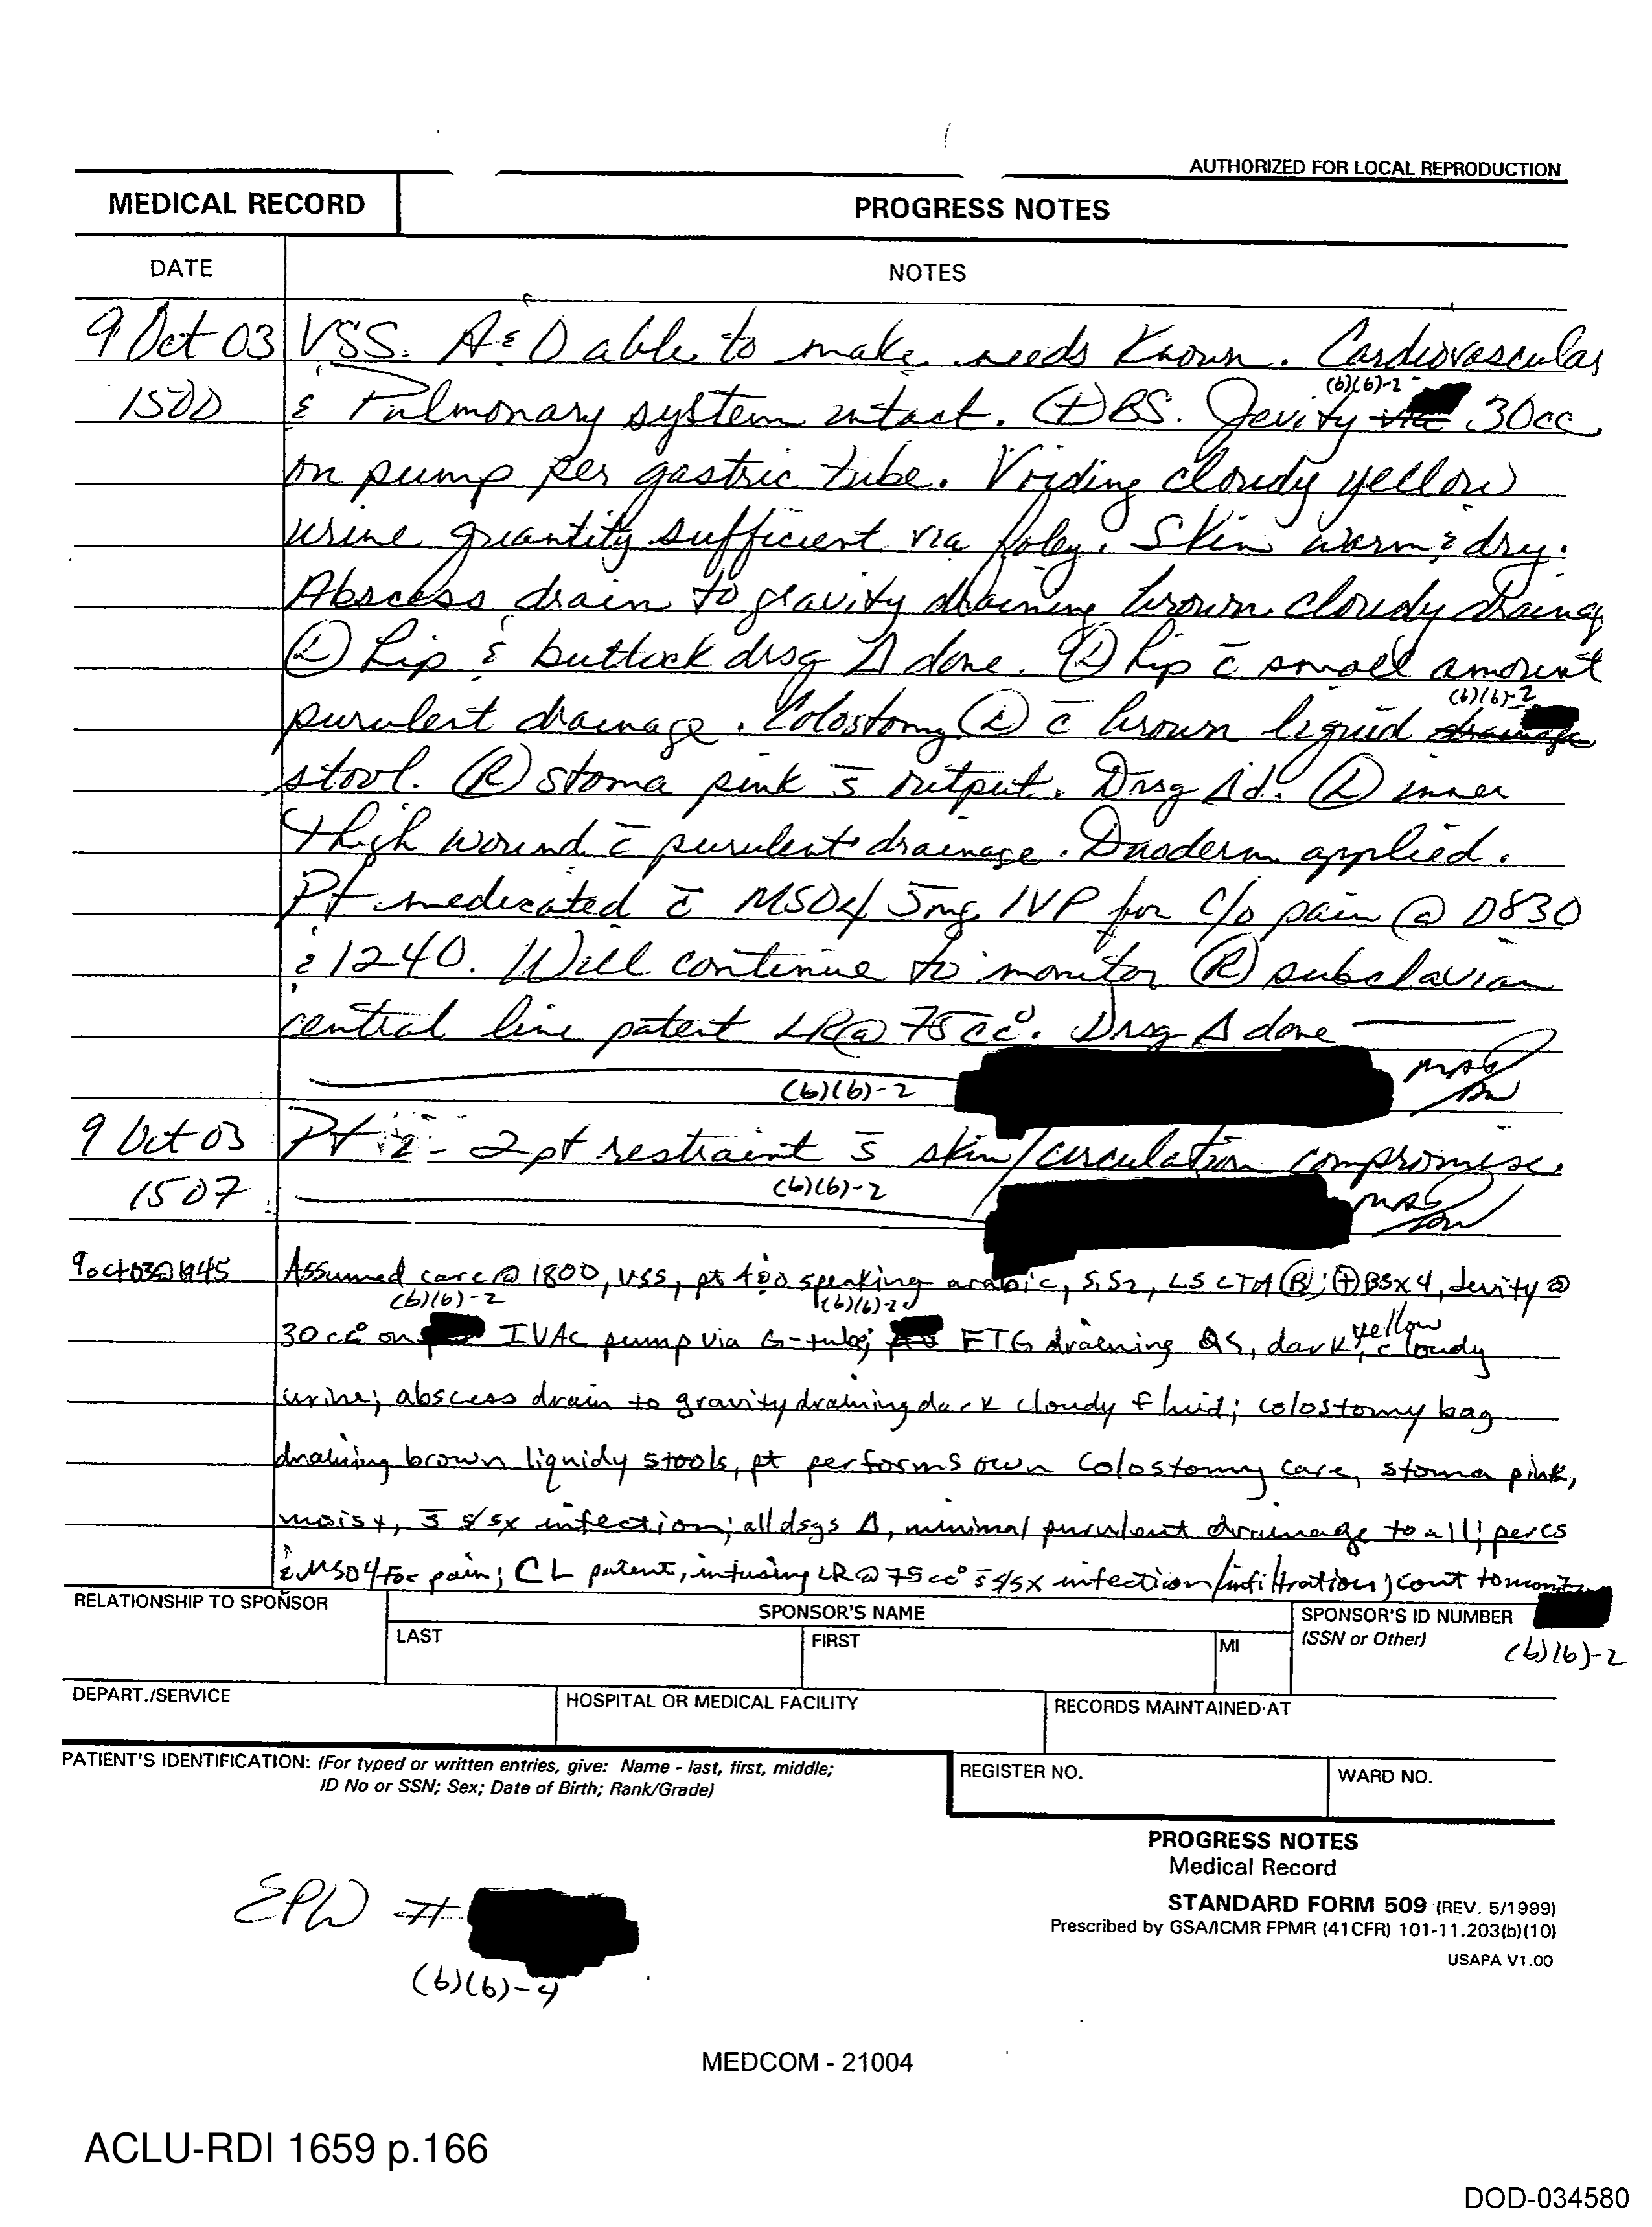 AUTHORIZED FOR LOCAL REPRODUCTION
MEDICAL RECORD
PROGRESS NOTES
DATE
NOTES
9 Oct 03 VSS. A & O able to make needs known. Cardiovascular
(b)(6)-2
1500 & Pulmonary system intact. (+) BS. Jevity 30cc
on pump per gastric tube. Voiding cloudy yellow
urine quantity sufficient via foley. Skin warm & dry.
Abscess drain to gravity draining brown cloudy drainag
(L) hip & buttock drsg Δ done. (L) hip c̄ small amount
(b)(6)-2
purulent drainage. Colostomy (L) c̄ brown liquid drainage
stool. (R) stoma pink s̄ output. Drsg Δd. (L) inner
thigh wound c̄ purulent drainage. Duoderm applied.
Pt medicated c̄ MSO4 5mg IVP for c/o pain @ 0830
& 1240. Will continue to monitor (R) subclavian
central line patent LR @ 75cc°. Drsg Δ done
(b)(6)-2
9 Oct 03 Pt 2 pt restraint s̄ skin/circulation compromise.
1507 (b)(6)-2
9oct03@1945 Assumed care @ 1800, VSS, pt speaking arabic, S1S2, LS CTA (B); (+) BSx4, Jevity @
(b)(6)-2 (b)(6)-2
30cc° on IVAC pump via G-tube; FTG draining QS, dark, yellow cloudy
urine; abscess drain to gravity draining dark cloudy fluid; colostomy bag
draining brown liquidy stools, pt performs own colostomy care, stoma pink,
moist, s̄ s/sx infection; all dsgs Δ, minimal purulent drainage to all; percs
& MSO4 for pain; CL patent, infusing LR @ 75cc° s̄ s/sx infection/infiltration; cont to
RELATIONSHIP TO SPONSOR
SPONSOR'S NAME
SPONSOR'S ID NUMBER
LAST
FIRST
MI
(SSN or Other)
(b)(6)-2
DEPART./SERVICE
HOSPITAL OR MEDICAL FACILITY
RECORDS MAINTAINED AT
PATIENT'S IDENTIFICATION: (For typed or written entries, give: Name - last, first, middle;
ID No or SSN; Sex; Date of Birth; Rank/Grade)
REGISTER NO.
WARD NO.
PROGRESS NOTES
Medical Record
STANDARD FORM 509 (REV. 5/1999)
Prescribed by GSA/ICMR FPMR (41CFR) 101-11.203(b)(10)
USAPA V1.00
EPW #
(b)(6)-4
MEDCOM - 21004
ACLU-RDI 1659 p.166
DOD-034580